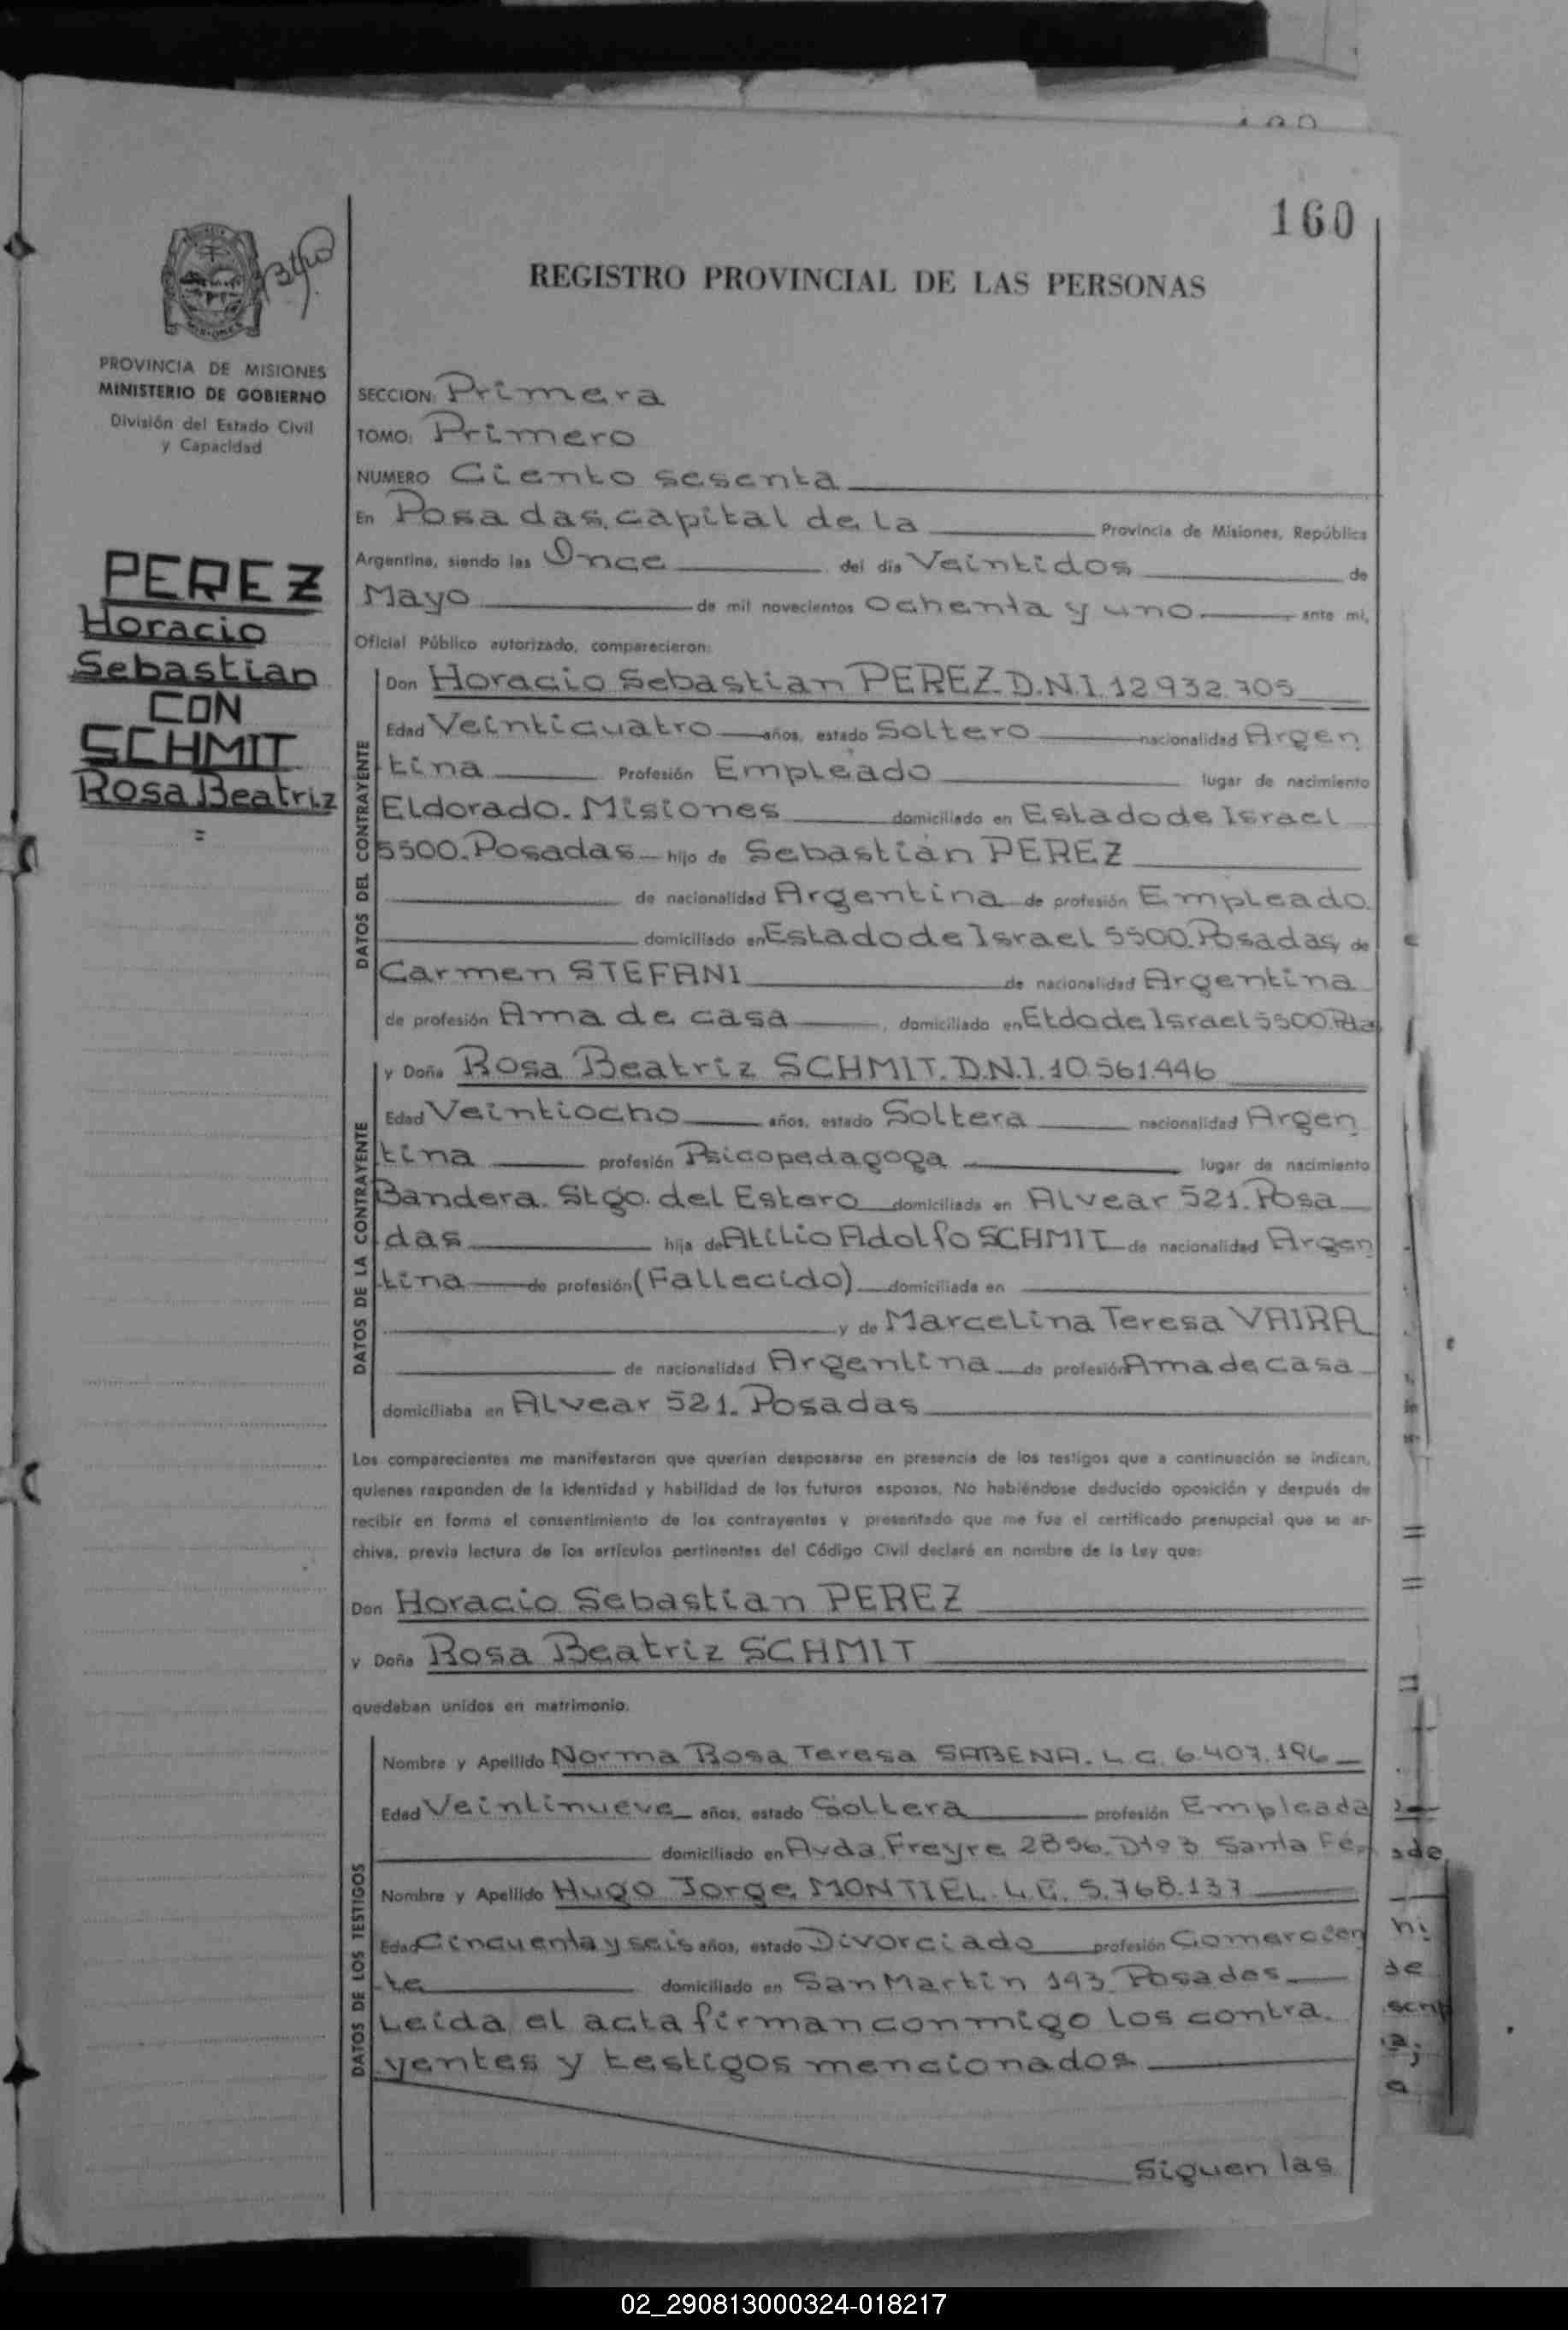 160
REGISTRO PROVINCIAL DE LAS PERSONAS
PROVINCIA DE MISIONES
MINISTERIO DE GOBIERNO
División del Estado Civil
y Capacidad
PEREZ
Horacio
Sebastian
CON
SCHMIT
Rosa Beatriz
=
SECCION: Primera
TOMO: Primero
NUMERO Ciento sesenta
En Posadas, capital de la Provincia de Misiones, República
Argentina, siendo las Once del día Veintidos de
Mayo de mil novecientos Ochenta y uno ante mi,
Oficial Público autorizado, comparecieron:
DATOS DEL CONTRAYENTE
Don Horacio Sebastian PEREZ. D.N.I. 12.932.705
Edad Veinticuatro años, estado Soltero nacionalidad Argen
tina Profesión Empleado lugar de nacimiento
Eldorado. Misiones domiciliado en Estado de Israel
5500. Posadas hijo de Sebastián PEREZ
de nacionalidad Argentina de profesión Empleado
domiciliado en Estado de Israel 5500. Posadas, de
Carmen STEFANI de nacionalidad Argentina
de profesión Ama de casa, domiciliado en Etdo de Israel 5500. Pda
DATOS DE LA CONTRAYENTE
y Doña Rosa Beatriz SCHMIT. D.N.I. 10.561.446
Edad Veintiocho años, estado Soltera nacionalidad Argen
tina profesión Psicopedagoga lugar de nacimiento
Bandera. Stgo. del Estero domiciliada en Alvear 521. Posa
das hija de Atilio Adolfo SCHMIT de nacionalidad Argen
tina de profesión (Fallecido) domiciliada en
y de Marcelina Teresa VAIRA
de nacionalidad Argentina de profesión Ama de casa
domiciliaba en Alvear 521. Posadas
Los comparecientes me manifestaron que querían desposarse en presencia de los testigos que a continuación se indican,
quienes responden de la identidad y habilidad de los futuros esposos. No habiéndose deducido oposición y después de
recibir en forma el consentimiento de los contrayentes y presentado que me fue el certificado prenupcial que se ar-
chiva, previa lectura de los artículos pertinentes del Código Civil declaré en nombre de la Ley que:
Don Horacio Sebastian PEREZ
y Doña Rosa Beatriz SCHMIT
quedaban unidos en matrimonio.
DATOS DE LOS TESTIGOS
Nombre y Apellido Norma Rosa Teresa SABENA. L.C. 6.407.196
Edad Veintinueve años, estado Soltera profesión Empleada
domiciliado en Avda. Freyre 2856. Dto 3 Santa Fé.
Nombre y Apellido Hugo Jorge MONTIEL. L.E. 5.768.137
Edad Cincuenta y seis años, estado Divorciado profesión Comercian
te domiciliado en San Martín 193. Posadas
Leída el acta firman conmigo los contra
yentes y testigos mencionados
Siguen las
02_290813000324-018217